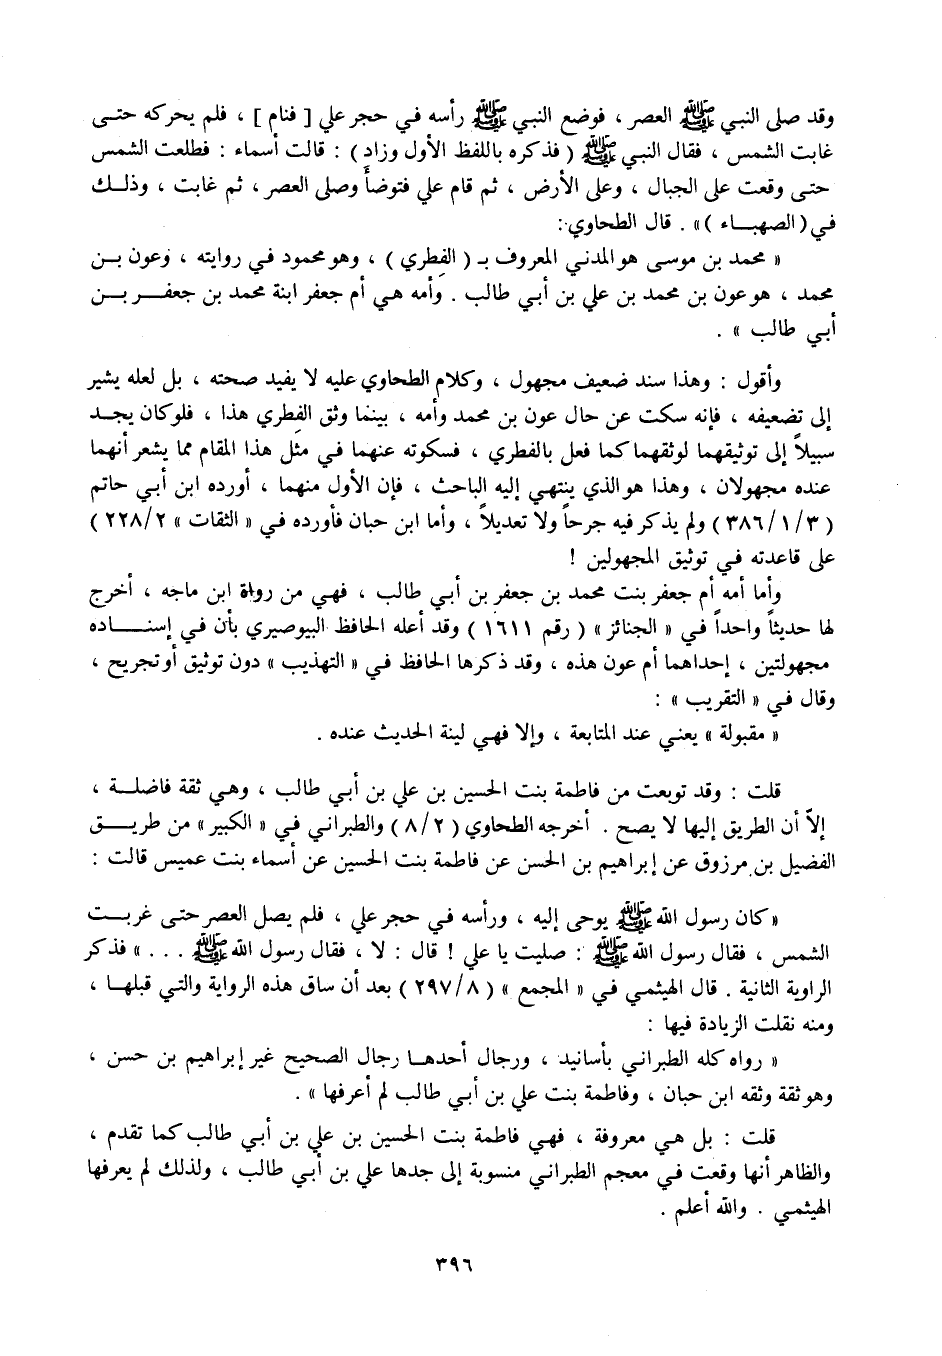 وقد صلى النبي ﷺ العصر ، فوضع النبي ﷺ رأسه في حجر علي [ فنام ] ، فلم يحركه حتى
غابت الشمس ، فقال النبي ﷺ ( فذكره باللفظ الأول وزاد ) : قالت أسماء : فطلعت الشمس
حتى وقعت على الجبال ، وعلى الأرض ، ثم قام علي فتوضأ وصلى العصر ، ثم غابت ، وذلك
في ( الصهباء ) » . قال الطحاوي :
« محمد بن موسى هو المدني المعروف بـ ( الفِطري ) ، وهو محمود في روايته ، وعون بن
محمد ، هو عون بن محمد بن علي بن أبي طالب . وأمه هي أم جعفر ابنة محمد بن جعفر بن
أبي طالب » .
وأقول : وهذا سند ضعيف مجهول ، وكلام الطحاوي عليه لا يفيد صحته ، بل لعله يشير
إلى تضعيفه ، فإنه سكت عن حال عون بن محمد وأمه ، بينما وثق الفِطري هذا ، فلو كان يجد
سبيلاً إلى توثيقهما لوثقهما كما فعل بالفطري ، فسكوته عنهما في مثل هذا المقام مما يشعر أنهما
عنده مجهولان ، وهذا هو الذي ينتهي إليه الباحث ، فإن الأول منهما ، أورده ابن أبي حاتم
( ٣/١/٣٨٦ ) ولم يذكر فيه جرحاً ولا تعديلاً ، وأما ابن حبان فأورده في « الثقات » ٢/٢٢٨ )
على قاعدته في توثيق المجهولين !
وأما أمه أم جعفر بنت محمد بن جعفر بن أبي طالب ، فهي من رواة ابن ماجه ، أخرج
لها حديثاً واحداً في « الجنائز » ( رقم ١٦١١ ) وقد أعله الحافظ البوصيري بأن في إسناده
مجهولتين ، إحداهما أم عون هذه ، وقد ذكرها الحافظ في « التهذيب » دون توثيق أو تجريح ،
وقال في « التقريب » :
« مقبولة » يعني عند المتابعة ، وإلا فهي لينة الحديث عنده .
قلت : وقد توبعت من فاطمة بنت الحسين بن علي بن أبي طالب ، وهي ثقة فاضلة ،
إلاّ أن الطريق إليها لا يصح . أخرجه الطحاوي ( ٢/٨ ) والطبراني في « الكبير » من طريق
الفضيل بن مرزوق عن إبراهيم بن الحسن عن فاطمة بنت الحسين عن أسماء بنت عميس قالت :
« كان رسول الله ﷺ يوحى إليه ، ورأسه في حجر علي ، فلم يصل العصر حتى غربت
الشمس ، فقال رسول الله ﷺ : صليت يا علي ! قال : لا ، فقال رسول الله ﷺ . . . » فذكر
الراوية الثانية . قال الهيثمي في « المجمع » ( ٨/٢٩٧ ) بعد أن ساق هذه الرواية والتي قبلها ،
ومنه نقلت الزيادة فيها :
« رواه كله الطبراني بأسانيد ، ورجال أحدها رجال الصحيح غير إبراهيم بن حسن ،
وهو ثقة وثقه ابن حبان ، وفاطمة بنت علي بن أبي طالب لم أعرفها » .
قلت : بل هي معروفة ، فهي فاطمة بنت الحسين بن علي بن أبي طالب كما تقدم ،
والظاهر أنها وقعت في معجم الطبراني منسوبة إلى جدها علي بن أبي طالب ، ولذلك لم يعرفها
الهيثمي . والله أعلم .
٣٩٦